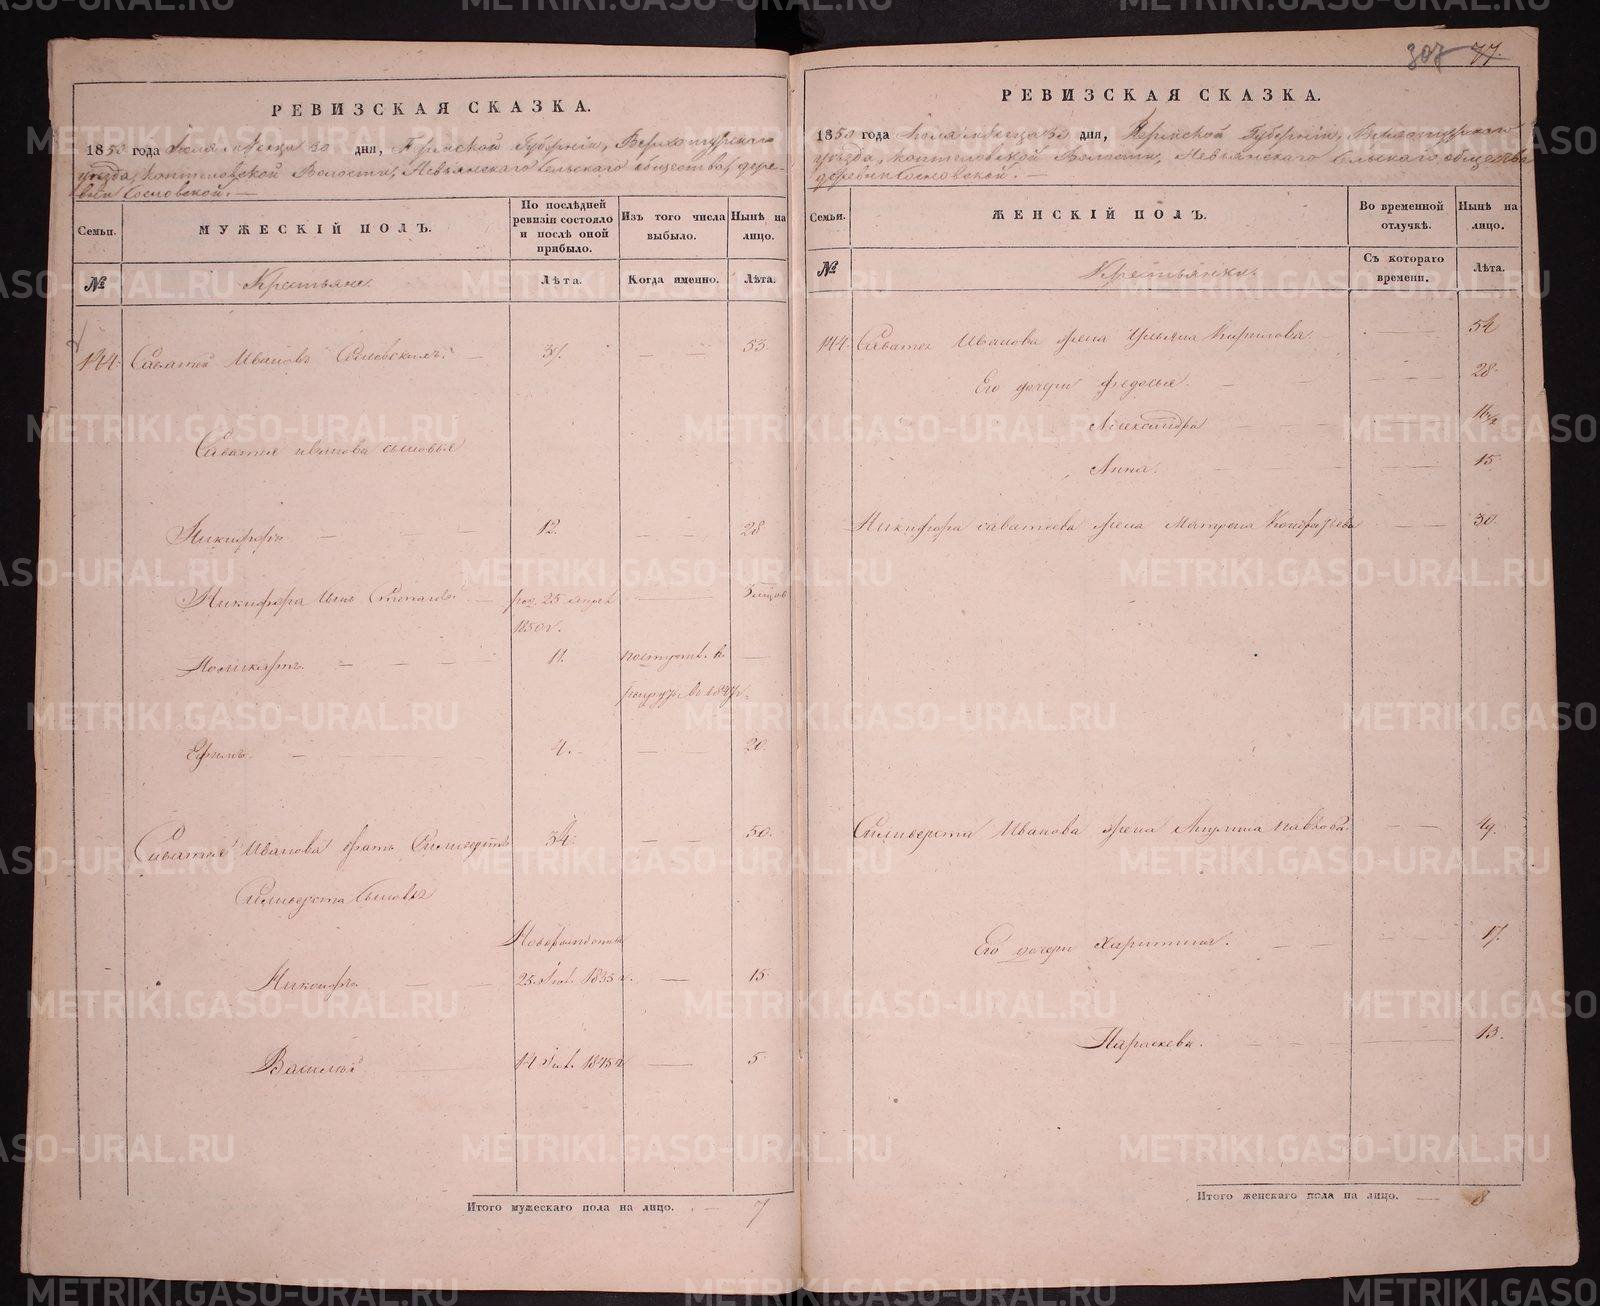 307 77.
РЕВИЗСКАЯ СКАЗКА.
1850 года Июля месяца 30 дня, Пермской Губернiи, Верхотурскаго
уезда, Коптеловской Волости, Невьянскаго Сельскаго общества, дере-
вни Сосновской. —
Семьи.
МУЖЕСКIЙ ПОЛЪ.
По послѣдней ревизiи состояло и послѣ оной прибыло.
Изъ того числа выбыло.
Нынѣ на лицо.
№
Крестьяне.
Лѣта.
Когда именно.
Лѣта.
144. Саватей Ивановъ Сосновскихъ. — 37. — 53.
Саватея иванова сыновья
Никифоръ — 12. — 28
Никифора сынъ — роз. 25 апрѣл — 3 мѣцов
1850 г.
11. поступ. в —
рекруты во 1847 г.
Ефимъ — 4. — 20.
Саватея Иванова братъ Силиверстъ 34. — 50.
Силиверста Сыновья
Новорожденные
Никифоръ — 25. 1835 г. — 15.
Василей — 14 1845 г — 5
Итого мужескаго пола на лицо. — 7
РЕВИЗСКАЯ СКАЗКА.
1850 года Июля месяца 30 дня, Пермской Губернiи, Верхотурскаго
уезда, Коптеловской Волости, Невьянскаго Сельскаго общества
деревни Сосновской. —
Семьи.
ЖЕНСКIЙ ПОЛЪ.
Во временной отлучкѣ.
Нынѣ на лицо.
№
Крестьянки
Съ котораго времени.
Лѣта.
144. Саватея Иванова жена Ульяна Кирилова. — 54
Его дочери Федосья. — 28.
Александра — 16½
Анна. — 15.
Никифора саватеева жена Матрена Кондратьева — 30.
Силиверста Иванова жена Павлова — 49.
Его дочери Харитина. — 17.
Параскева. — 13.
Итого женскаго пола на лицо. — 8
METRIKI.GASO-URAL.RU